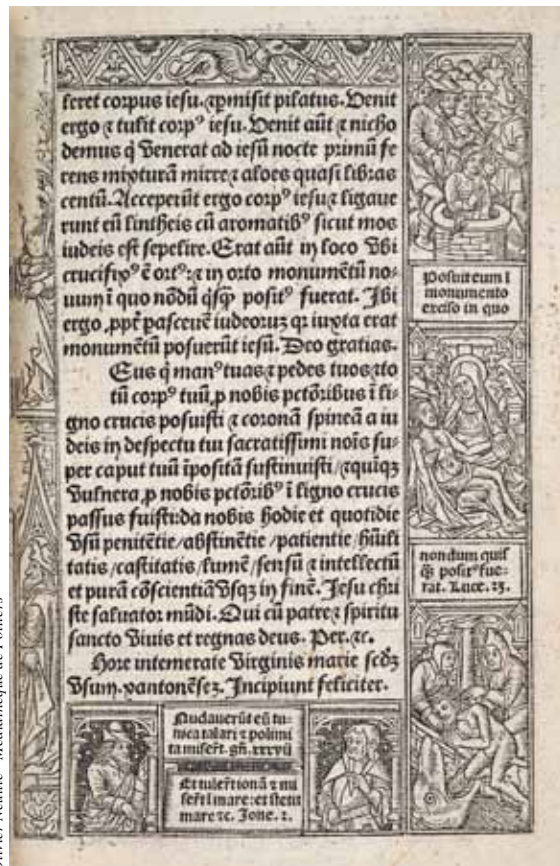 leret corpus iesu. ⁊ ꝑmisit pilatus. Venit
ergo ⁊ tulit corpꝰ iesu. Venit aūt ⁊ nicho
demus q̇ Venerat ad iesū nocte primū fe
rens mixturā mirre ⁊ aloes quasi libras
centū. Acceperūt ergo corpꝰ iesu ⁊ ligaue
runt eū lintheis cū aromatibꝰ sicut mos
iudeis est sepelire. Erat aūt in loco Vbi
crucifixꝰ ē ortꝰ: ⁊ in orto monumētū no-
uum ī quo nōdū q̇sꝙ positꝰ fuerat. Ibi
ergo ꝓpt̄ pasceuē iudeoruꝫ qꝛ iuxta erat
monumētū posuerūt iesū. Deo gratias.
Eus q̇ manꝰ tuas ⁊ pedes tuos ⁊ to
tū corpꝰ tuū ꝓ nobis pctōribus ī li-
gno crucis posuisti ⁊ coronā spineā a iu
deis in despectu tui sacratissimi noīs su-
per caput tuū īpositā sustinuisti / ⁊ quiqꝫ
Vulnera ꝓ nobis pctōribꝰ ī ligno crucis
passus fuisti: da nobis hodie et quotidie
Vsū penitētie / abstinētie / patientie / hūili
tatis / castitatis / lumē / sensū ⁊ intellectū
et purā cōscientiā Vsqꝫ in finē. Jesu chri
ste saluator mūdi. Qui cū patre ⁊ spiritu
sancto Viuis et regnas deus. Per. ⁊c.
Hore intemerate Virginis marie scḋꝫ
Vsum. xantonēseꝫ. Incipiunt feliciter.
Posuit eum ī
monumento
exciso in quo
nondum quis
ꝙ̄ positꝰ fue-
rat. Luce. 23.
Nudauerūt eū tu-
nica talari ⁊ polimi
ta miser̄t. gn̄. xxxvii
Et tuler̄t ionā ⁊ mi
ser̄t ī mare: et stetit
mare ⁊c. Jone. 1.
Olivier Neuillé - Médiathèque de Poitiers